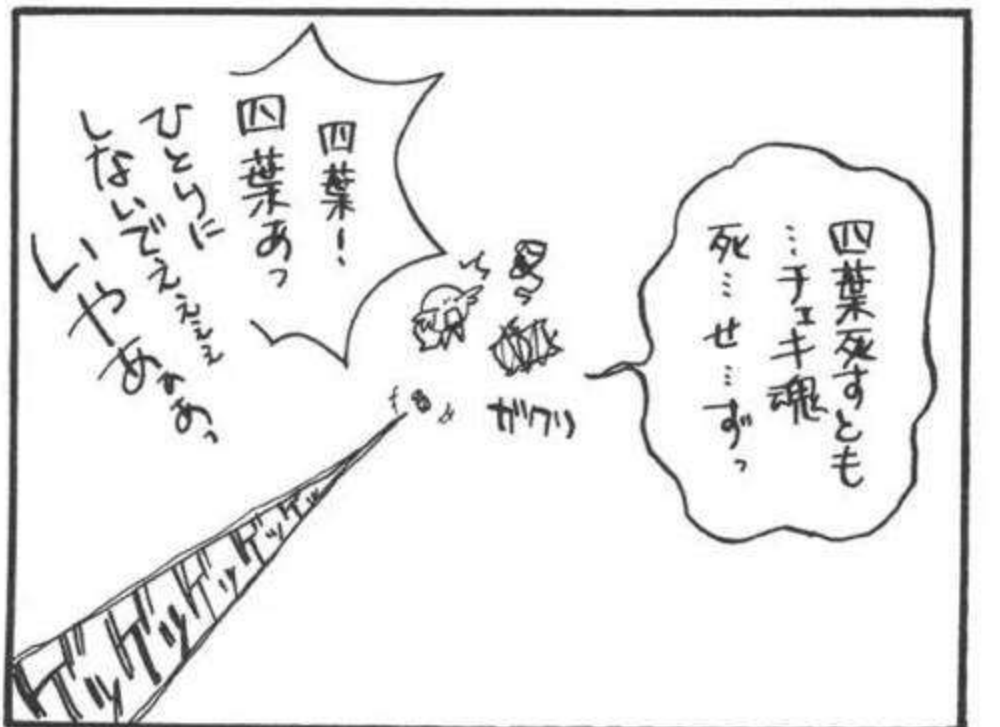 四葉死すとも
…チェキ魂
死…せ…ずっ
四葉!
四葉あっ
ひとりに
しないでぇぇぇぇ
いやあぁあっ
ガクッ
ゲッゲッゲッゲッゲッゲッ